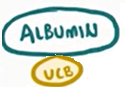 ALBUMIN
UCB